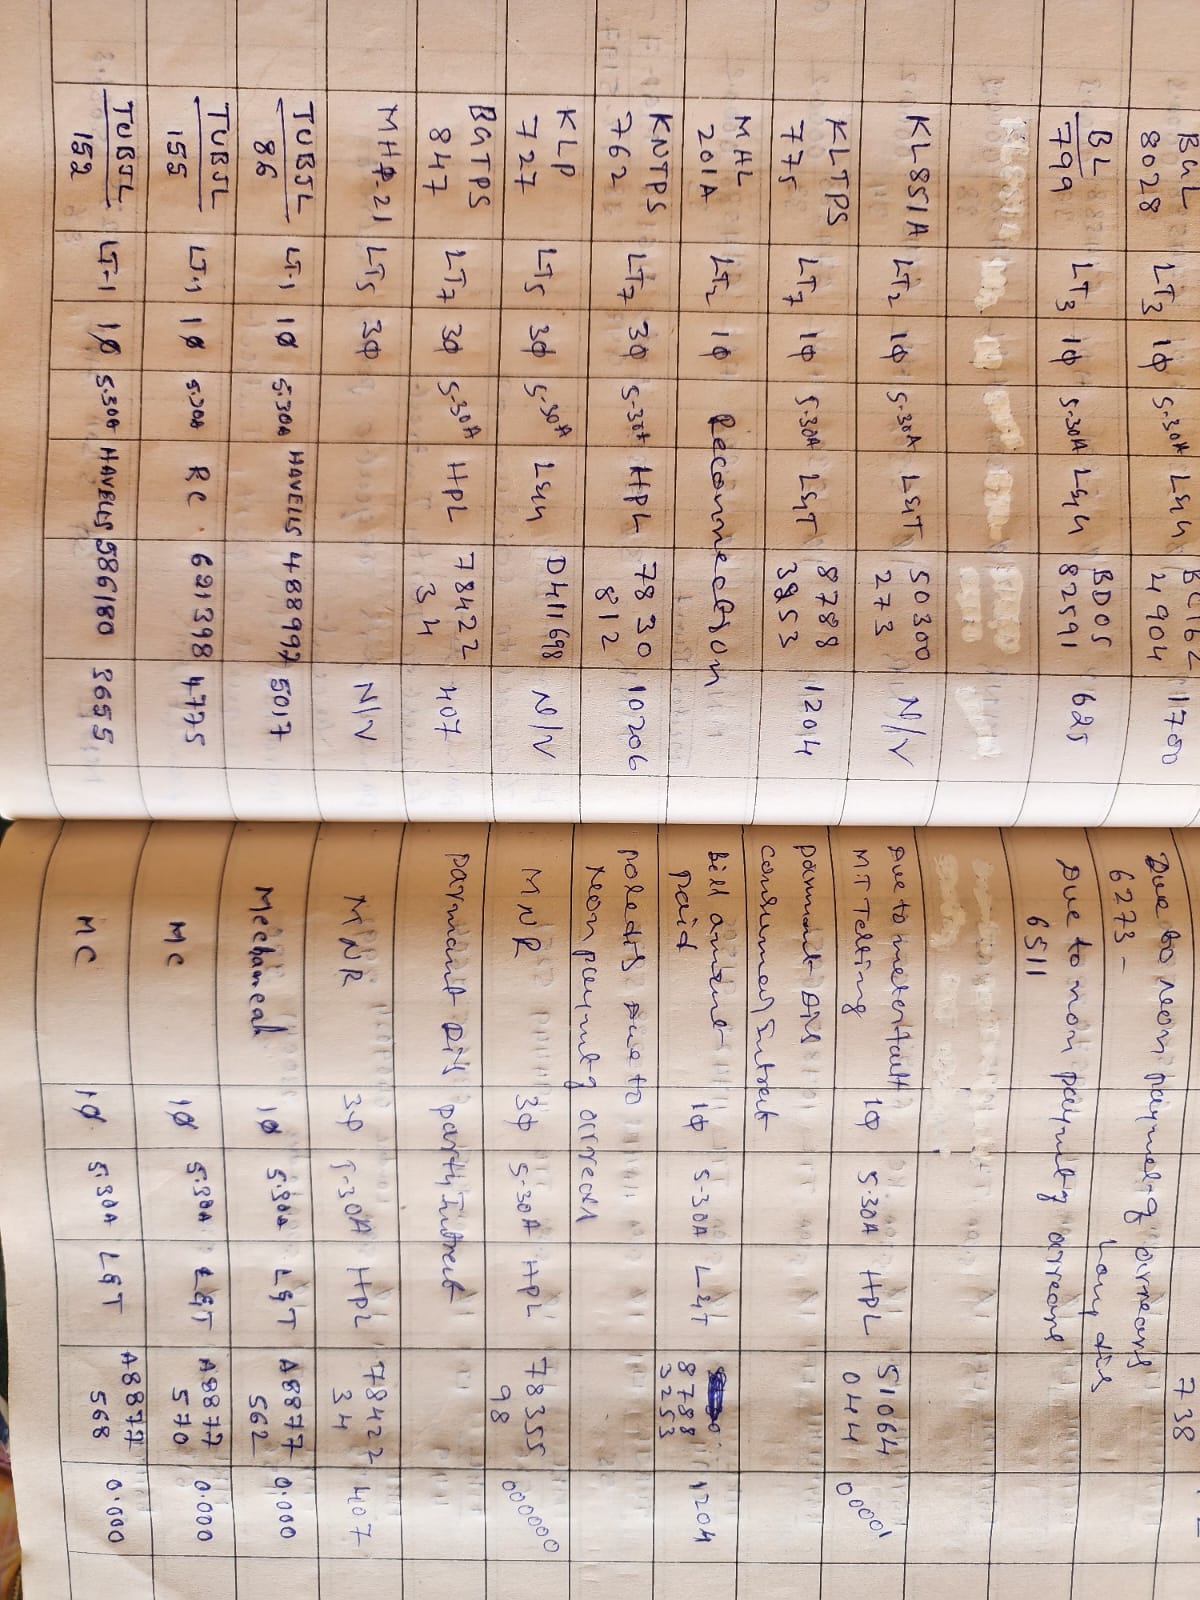 BGL 8028 LT3 1φ 5-30A L&T BC162 4904 1700 Due to non payment of arrears 6273 - Long dis 738
BL 799 LT3 1φ 5-30A L&T BD05 82591 625 Due to non payment of arrears 6511
KL851A LT2 1φ 5-30A L&T 50300 273 N/V Due to meter fault MT Testing 1φ 5-30A HPL 51064 044 00001
KLTPS 775 LT7 1φ 5-30A L&T 8788 3253 1204
MHL 201A LT2 1φ Reconnection bill amount paid 1φ 5-30A L&T 8788 3253 1204
KNTPS 762 LT7 3φ 5-30A HPL 7830 812 10206 poledis due to Non payment of arrears
KLP 727 LT5 3φ 5-30A L&T D411698 N/V MNR 3φ 5-30A HPL 78355 98 000000
BGTPS 847 LT7 3φ 5-30A HPL 78422 34 407
MHP-21 LT5 3φ N/V MNR 3φ 5-30A HPL 78422 34 407
TUBJL 86 LT-1 1φ 5.30A HAVELLS 488997 5017 Mechanical 1φ 5.30A L&T A8877 562 0.000
TUBJL 155 LT-1 1φ 5.30A RC 621398 4775 MC 1φ 5.30A L&T A8877 570 0.000
TUBJL 152 LT-1 1φ 5.30A HAVELLS 586180 8655 MC 1φ 5.30A L&T A8877 568 0.000